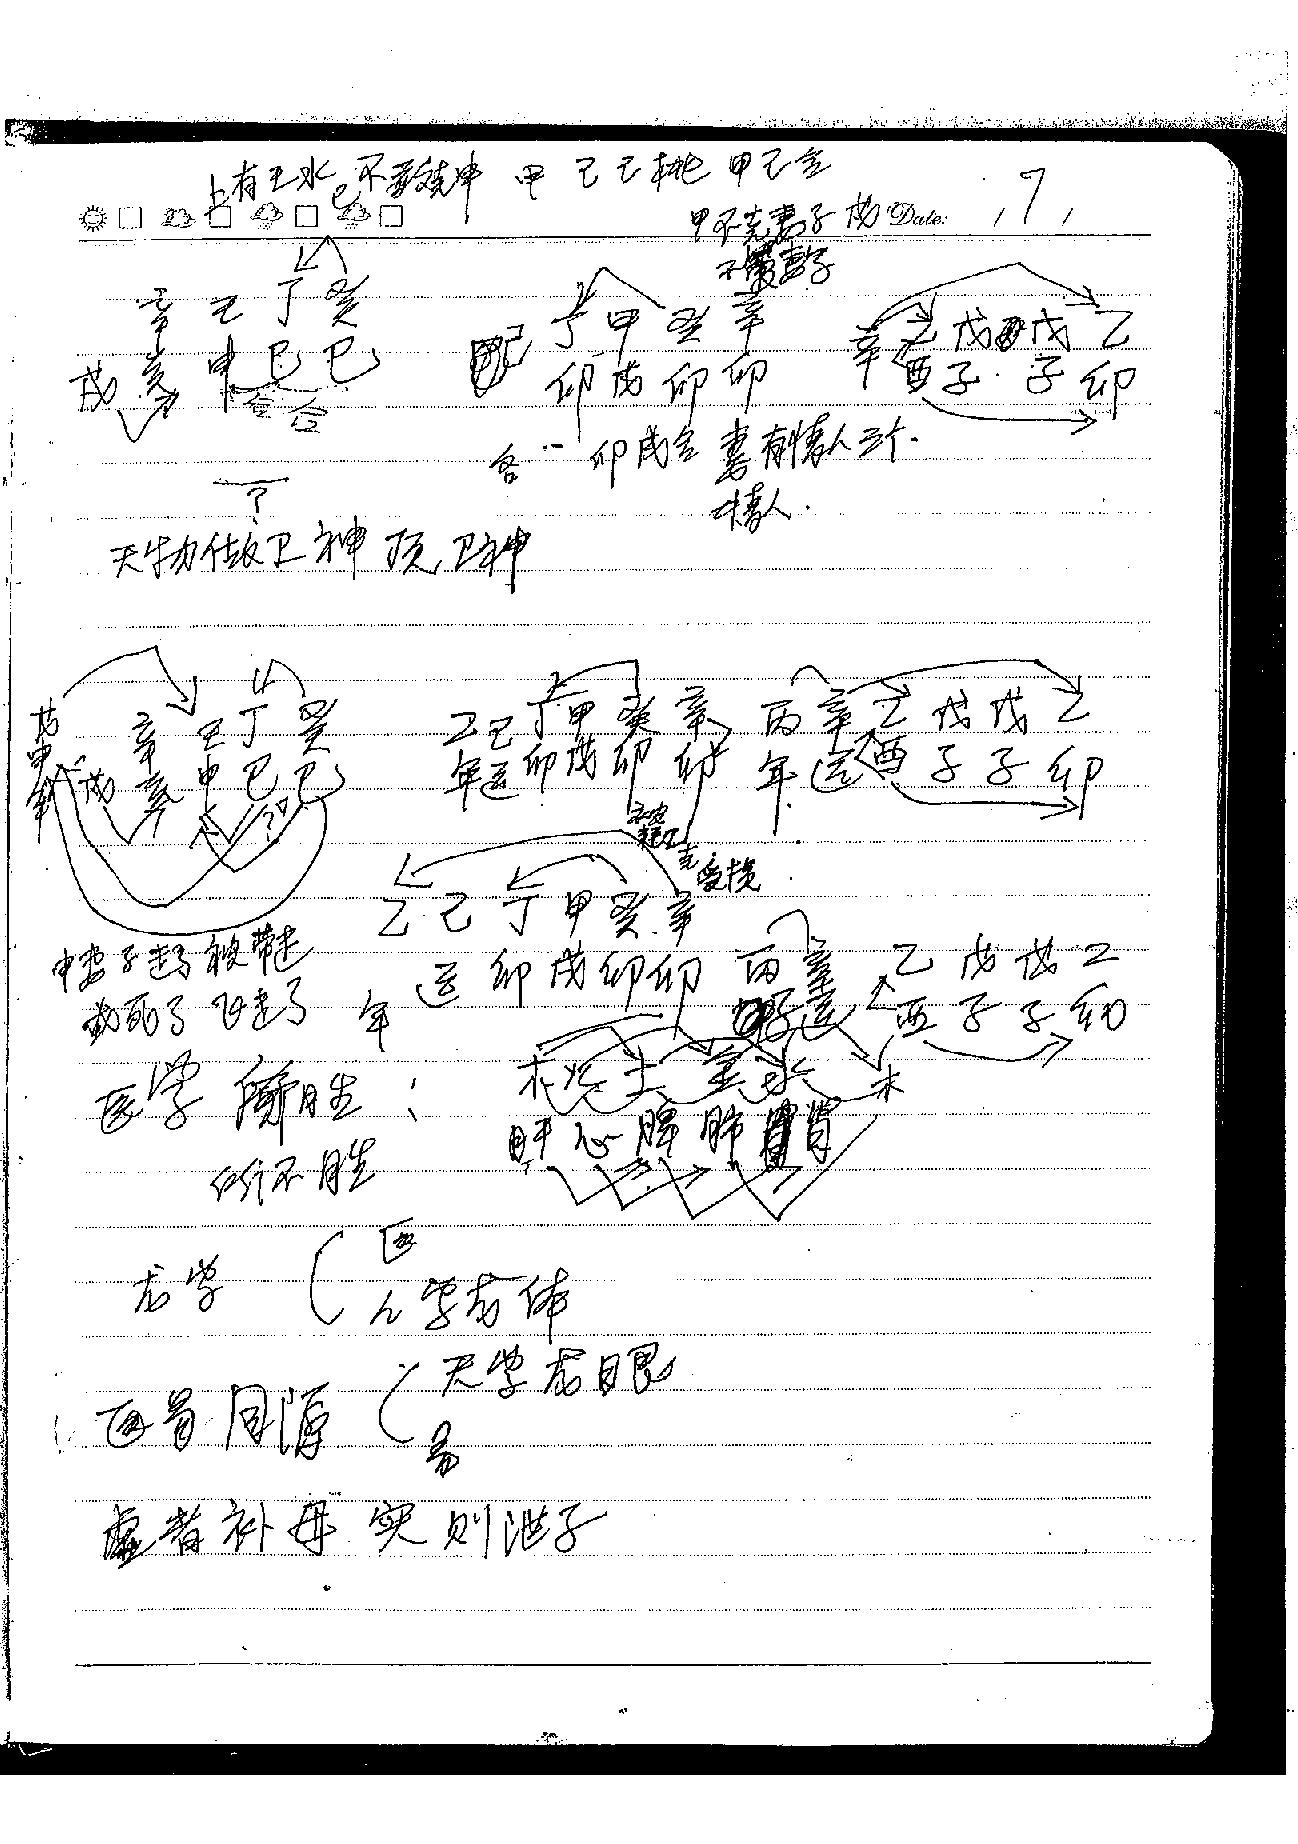 上有壬水 不 克申 甲 己 己 桃 甲己合
7
甲不克妻子 戊 Date:
不 妻子
辛 壬 丁 癸
戊 亥 申 巳 巳
合 合
丁 甲 癸 辛
卯 戌 卯 卯
辛 乙 戊 戊 乙
酉 子 子 卯
各一 卯戌合 妻有情人三个.
情人.
?
天 做卫神 顶卫神
戊申年
戊
辛 壬 丁 癸
亥 申 巳 巳
乙 己 丁 甲 癸 辛
年 运 卯 戌 卯 卯
丙 辛 乙 戊 戊 乙
年 运 酉 子 子 卯
克 受损
乙 己 丁 甲 癸 辛
年 运 卯 戌 卯 卯
丙 辛 乙 戊 戊 乙
运 酉 子 子 卯
申妻子走了 被带走
戌死了 飞走了
医学 所胜:
所不胜
木 火 土 金 水 木
肝 心 脾 肺 肾
龙学
医
人学龙体
医易同源
天学龙眼
易
虚者补母 实则泄子